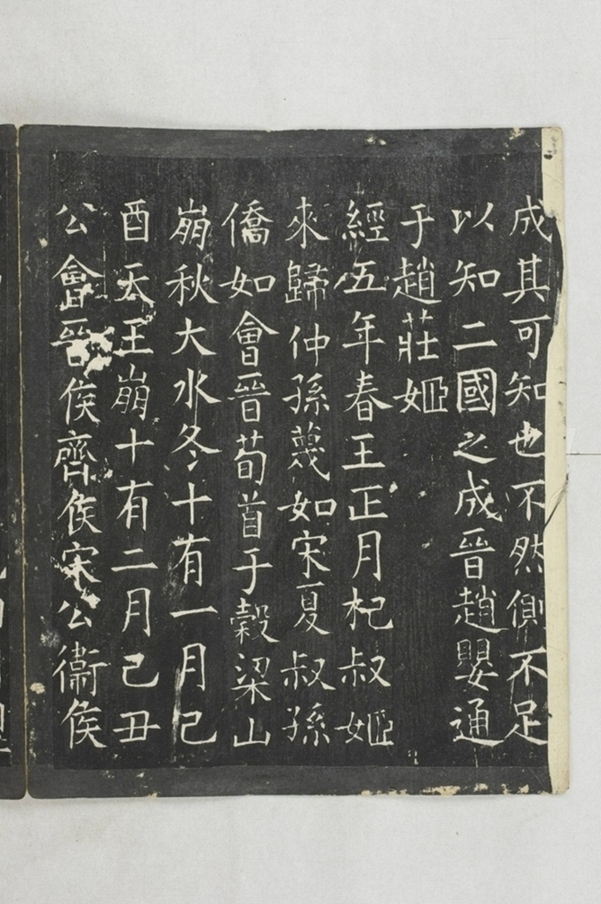 成其可知也不然側不足
以知二國之成晉趙嬰通
于趙莊姬
經五年春王正月杞叔姬
來歸仲孫蔑如宋夏叔孫
僑如會晉荀首于穀梁山
崩秋大水冬十有一月己
酉天王崩十有二月己丑
公會晉侯齊侯宋公衞侯